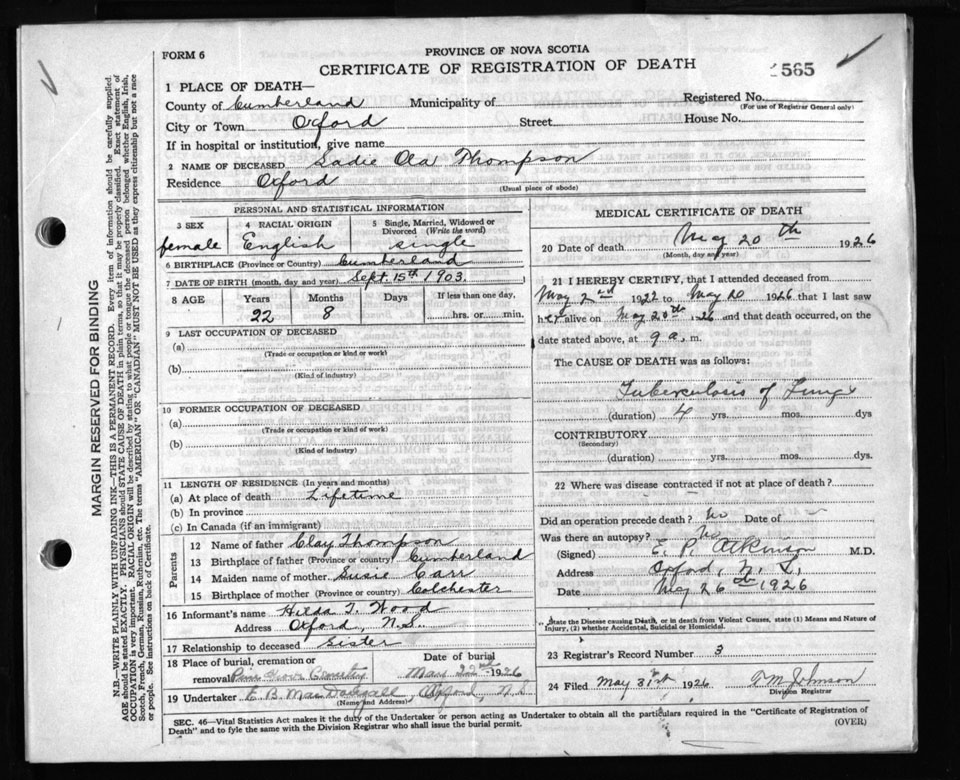 FORM 6
PROVINCE OF NOVA SCOTIA
CERTIFICATE OF REGISTRATION OF DEATH
565
1 PLACE OF DEATH—
County of Cumberland Municipality of Registered No.
(For use of Registrar General only)
City or Town Oxford Street House No.
If in hospital or institution, give name
2 NAME OF DECEASED Sadie Ola Thompson
Residence Oxford
(Usual place of abode)
PERSONAL AND STATISTICAL INFORMATION
3 SEX 4 RACIAL ORIGIN 5 Single, Married, Widowed or Divorced (Write the word)
female English single
6 BIRTHPLACE (Province or Country) Cumberland
7 DATE OF BIRTH (month, day and year) Sept. 15th 1903.
8 AGE Years Months Days If less than one day,
22 8 hrs. or min.
9 LAST OCCUPATION OF DECEASED
(a)
(Trade or occupation or kind or work)
(b)
(Kind of industry)
10 FORMER OCCUPATION OF DECEASED
(a)
(Trade or occupation or kind of work)
(b)
(Kind of industry)
11 LENGTH OF RESIDENCE (In years and months)
(a) At place of death Lifetime
(b) In province
(c) In Canada (if an immigrant)
Parents
12 Name of father Clay Thompson
13 Birthplace of father (Province or country) Cumberland
14 Maiden name of mother Susie Carr
15 Birthplace of mother (Province or country) Colchester
16 Informant's name Hilda T. Wood
Address Oxford, N.S.
17 Relationship to deceased Sister
18 Place of burial, cremation or Date of burial
removal Pine Grove Cemetery May 22nd 1926
19 Undertaker E. B. MacDougall, Oxford, N.S.
(Name and Address)
MEDICAL CERTIFICATE OF DEATH
20 Date of death May 20th 1926
(Month, day and year)
21 I HEREBY CERTIFY, that I attended deceased from
May 2nd 1922 to May 20 1926 that I last saw
her alive on May 20th 1926 and that death occurred, on the
date stated above, at 9 a. m.
The CAUSE OF DEATH was as follows:
Tuberculosis of Lungs
(duration) 4 yrs. mos. dys
CONTRIBUTORY
(Secondary)
(duration) yrs. mos. dys.
22 Where was disease contracted if not at place of death?
Did an operation precede death? No Date of
Was there an autopsy? No
(Signed) E. P. Atkinson M.D.
Address Oxford, N.S.
Date May 26th 1926
State the Disease causing Death, or in death from Violent Causes, state (1) Means and Nature of
Injury, (2) whether Accidental, Suicidal or Homicidal.
23 Registrar's Record Number 3
24 Filed May 31st 1926 Johnson
Division Registrar
SEC. 46—Vital Statistics Act makes it the duty of the Undertaker or person acting as Undertaker to obtain all the particulars required in the "Certificate of Registration of
Death" and to fyle the same with the Division Registrar who shall issue the burial permit. (OVER)
MARGIN RESERVED FOR BINDING
N.B.—WRITE PLAINLY WITH UNFADING INK—THIS IS A PERMANENT RECORD. Every item of information should be carefully supplied.
AGE should be stated EXACTLY. PHYSICIANS should STATE CAUSE OF DEATH in plain terms, so that it may be properly classified. Exact statement of
OCCUPATION is very important. RACIAL ORIGIN will be described by stating to what people or tongue the deceased person belonged whether English, Irish,
Scotch, French, German, Russian, Ruthenian, etc. The terms "AMERICAN" OR "CANADIAN" MUST NOT BE USED as they express citizenship but not a race
or people. See instructions on back of Certificate.